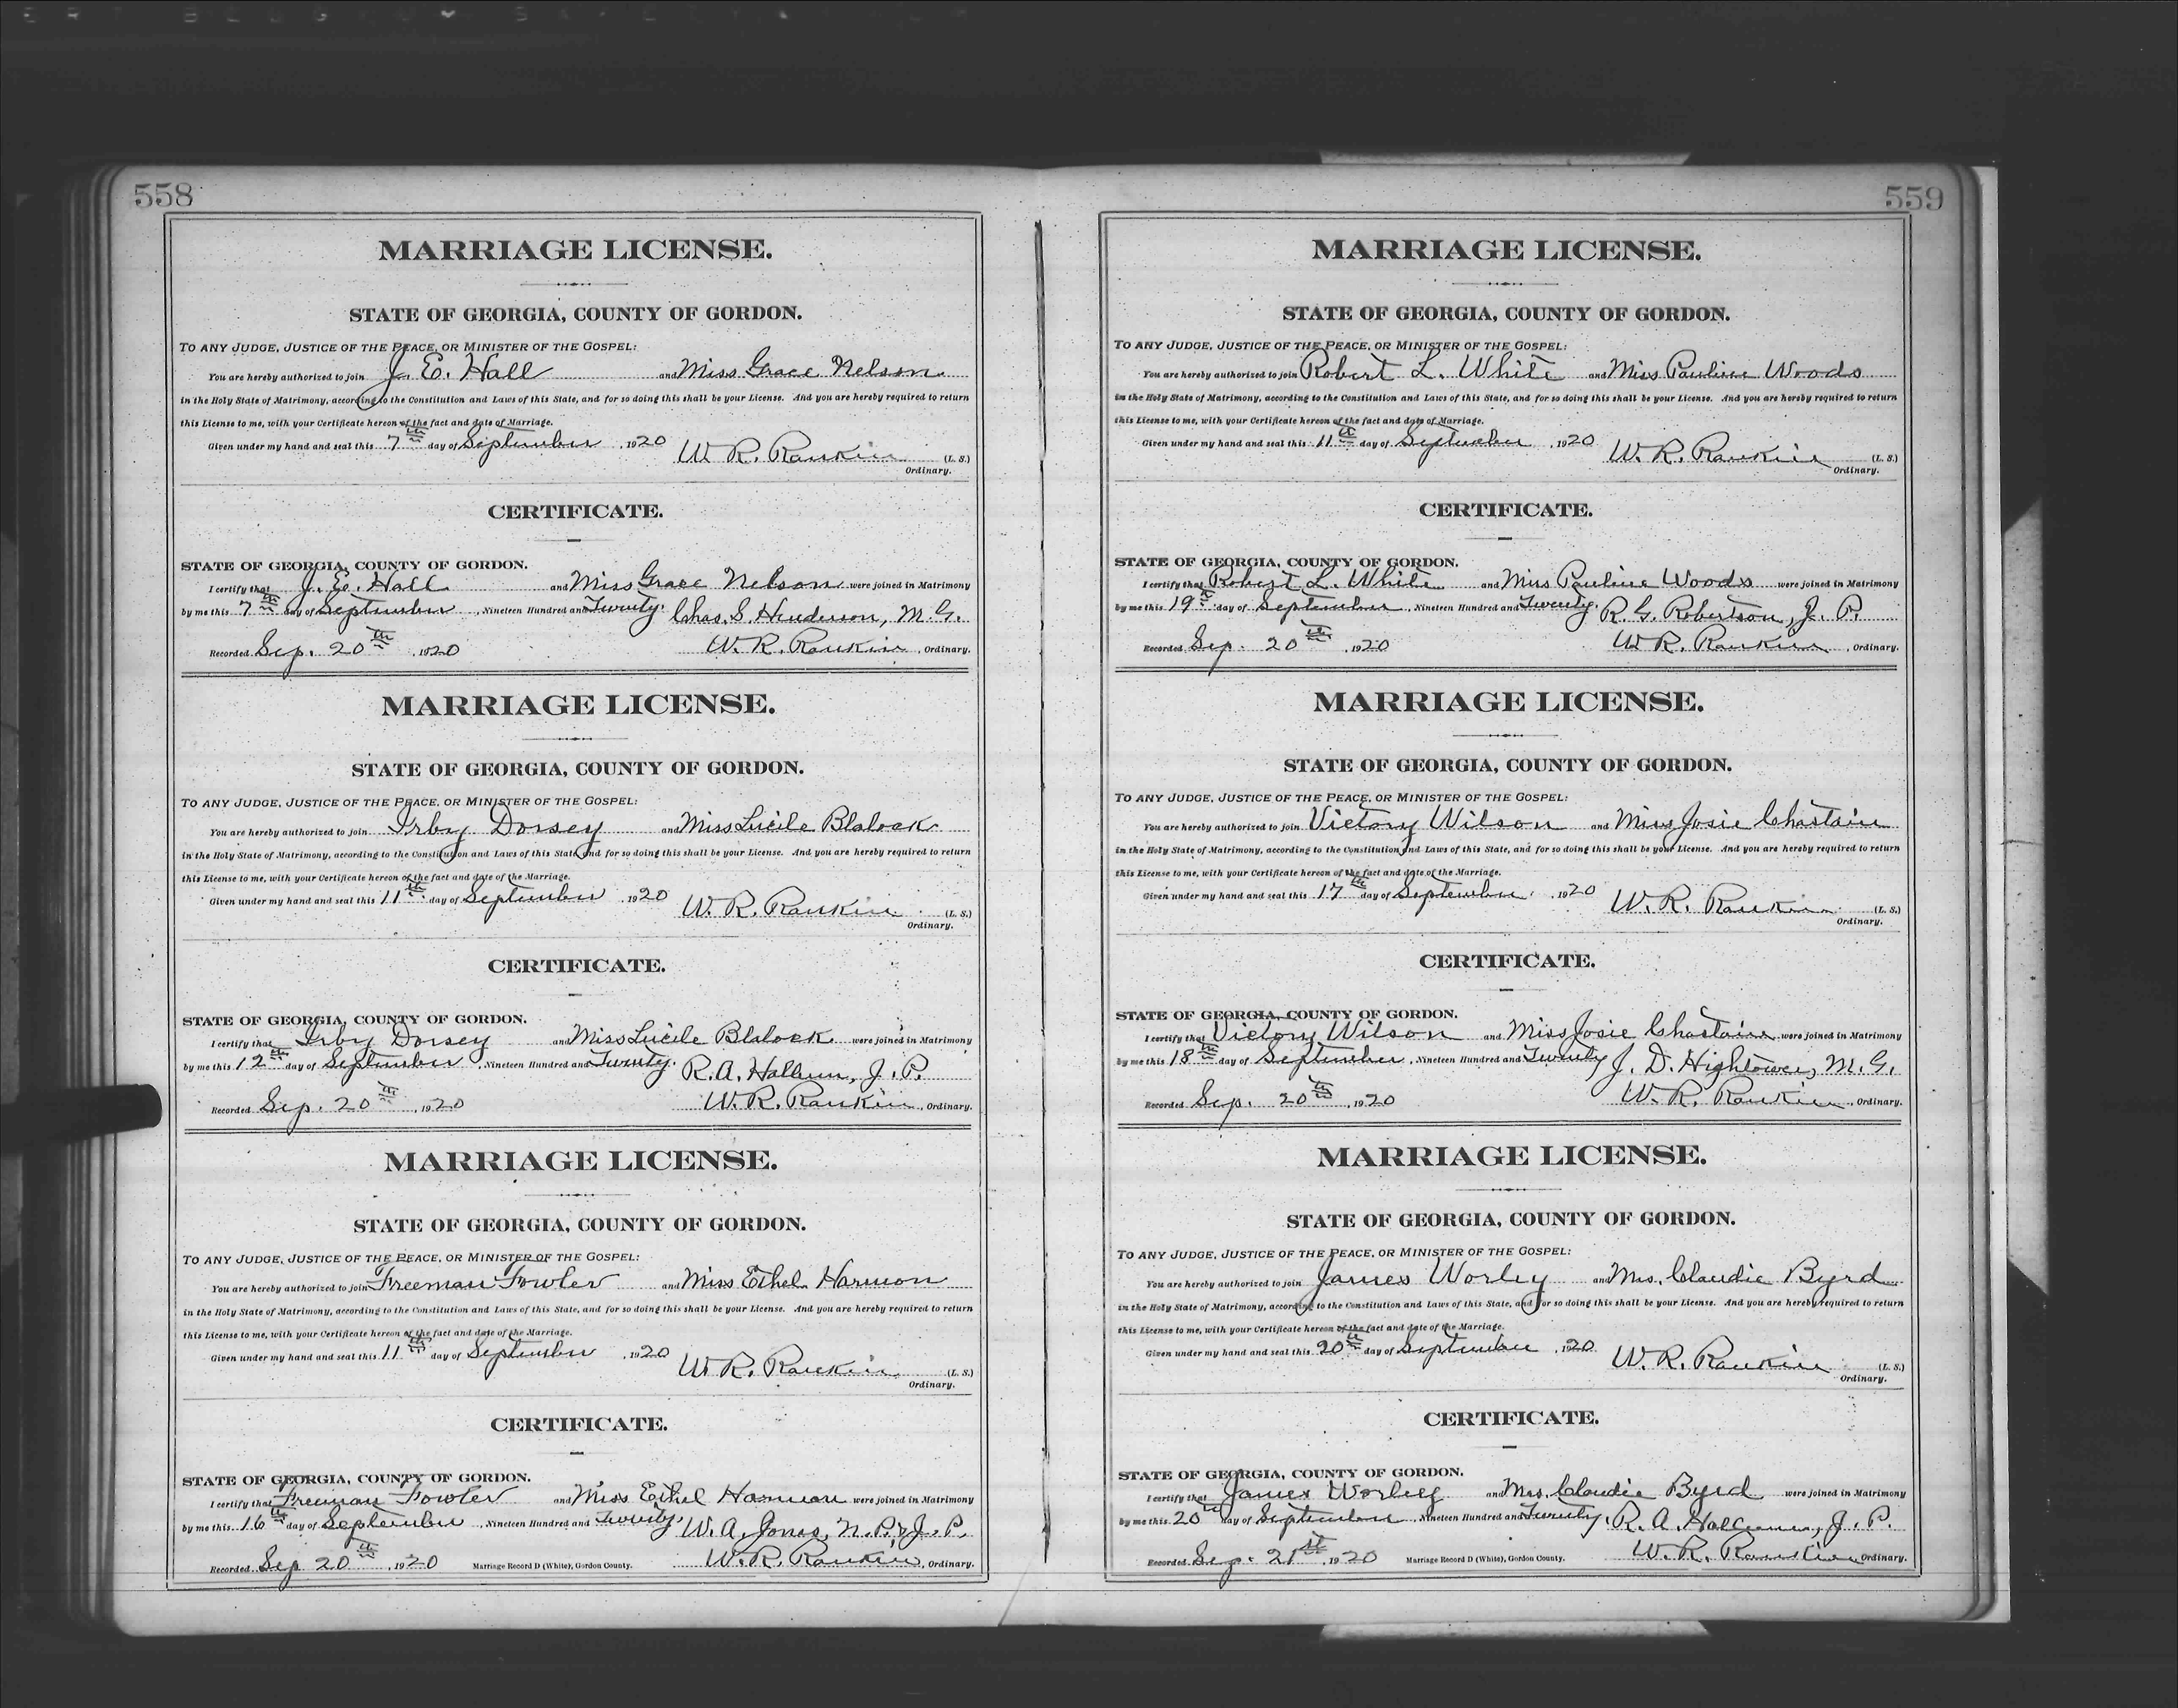 558
MARRIAGE LICENSE.
STATE OF GEORGIA, COUNTY OF GORDON.
TO ANY JUDGE, JUSTICE OF THE PEACE, OR MINISTER OF THE GOSPEL:
You are hereby authorized to join J. E. Hall and Miss Grace Nelson
in the Holy State of Matrimony, according to the Constitution and Laws of this State, and for so doing this shall be your License. And you are hereby required to return
this License to me, with your Certificate hereon of the fact and date of Marriage.
Given under my hand and seal this 7th day of September 1920 W. R. Rankin (L. S.)
Ordinary.
CERTIFICATE.
STATE OF GEORGIA, COUNTY OF GORDON.
I certify that J. E. Hall and Miss Grace Nelson were joined in Matrimony
by me this 7th day of September, Nineteen Hundred and Twenty. Chas. S. Henderson, M. G.
Recorded Sep. 20th 1920 W. R. Rankin, Ordinary.
MARRIAGE LICENSE.
STATE OF GEORGIA, COUNTY OF GORDON.
TO ANY JUDGE, JUSTICE OF THE PEACE, OR MINISTER OF THE GOSPEL:
You are hereby authorized to join Irby Dorsey and Miss Lucile Blalock
in the Holy State of Matrimony, according to the Constitution and Laws of this State, and for so doing this shall be your License. And you are hereby required to return
this License to me, with your Certificate hereon of the fact and date of the Marriage.
Given under my hand and seal this 11th day of September 1920 W. R. Rankin (L. S.)
Ordinary.
CERTIFICATE.
STATE OF GEORGIA, COUNTY OF GORDON.
I certify that Irby Dorsey and Miss Lucile Blalock were joined in Matrimony
by me this 12th day of September, Nineteen Hundred and Twenty. R. A. Hallum, J. P.
Recorded Sep. 20th, 1920 W. R. Rankin, Ordinary.
MARRIAGE LICENSE.
STATE OF GEORGIA, COUNTY OF GORDON.
TO ANY JUDGE, JUSTICE OF THE PEACE, OR MINISTER OF THE GOSPEL:
You are hereby authorized to join Freeman Fowler and Miss Ethel Harmon
in the Holy State of Matrimony, according to the Constitution and Laws of this State, and for so doing this shall be your License. And you are hereby required to return
this License to me, with your Certificate hereon of the fact and date of the Marriage.
Given under my hand and seal this 11th day of September, 1920 W. R. Rankin (L. S.)
Ordinary.
CERTIFICATE.
STATE OF GEORGIA, COUNTY OF GORDON.
I certify that Freeman Fowler and Miss Ethel Harmon were joined in Matrimony
by me this 16th day of September, Nineteen Hundred and Twenty. W. A. Jones, N. P. & J. P.
Recorded Sep 20th, 1920 Marriage Record D (White), Gordon County. W. R. Rankin, Ordinary.
559
MARRIAGE LICENSE.
STATE OF GEORGIA, COUNTY OF GORDON.
TO ANY JUDGE, JUSTICE OF THE PEACE, OR MINISTER OF THE GOSPEL:
You are hereby authorized to join Robert L. White and Miss Pauline Woods
in the Holy State of Matrimony, according to the Constitution and Laws of this State, and for so doing this shall be your License. And you are hereby required to return
this License to me, with your Certificate hereon of the fact and date of the Marriage.
Given under my hand and seal this 11th day of September, 1920 W. R. Rankin (L. S.)
Ordinary.
CERTIFICATE.
STATE OF GEORGIA, COUNTY OF GORDON.
I certify that Robert L. White and Miss Pauline Woods were joined in Matrimony
by me this 19th day of September, Nineteen Hundred and Twenty. R. G. Robertson, J. P.
Recorded Sep. 20th, 1920 W. R. Rankin, Ordinary.
MARRIAGE LICENSE.
STATE OF GEORGIA, COUNTY OF GORDON.
TO ANY JUDGE, JUSTICE OF THE PEACE, OR MINISTER OF THE GOSPEL:
You are hereby authorized to join Victory Wilson and Miss Josie Chastain
in the Holy State of Matrimony, according to the Constitution and Laws of this State, and for so doing this shall be your License. And you are hereby required to return
this License to me, with your Certificate hereon of the fact and date of the Marriage.
Given under my hand and seal this 17th day of September, 1920 W. R. Rankin (L. S.)
Ordinary.
CERTIFICATE.
STATE OF GEORGIA, COUNTY OF GORDON.
I certify that Victory Wilson and Miss Josie Chastain were joined in Matrimony
by me this 18th day of September, Nineteen Hundred and Twenty J. D. Hightower, M. G.
Recorded Sep. 20th, 1920 W. R. Rankin, Ordinary.
MARRIAGE LICENSE.
STATE OF GEORGIA, COUNTY OF GORDON.
TO ANY JUDGE, JUSTICE OF THE PEACE, OR MINISTER OF THE GOSPEL:
You are hereby authorized to join James Worley and Mrs. Claudie Byrd
in the Holy State of Matrimony, according to the Constitution and Laws of this State, and for so doing this shall be your License. And you are hereby required to return
this License to me, with your Certificate hereon of the fact and date of the Marriage.
Given under my hand and seal this 20th day of September, 1920 W. R. Rankin (L. S.)
Ordinary.
CERTIFICATE.
STATE OF GEORGIA, COUNTY OF GORDON.
I certify that James Worley and Mrs. Claudie Byrd were joined in Matrimony
by me this 20th day of September, Nineteen Hundred and Twenty. R. A. Hallum, J. P.
Recorded Sep. 21st, 1920 Marriage Record D (White), Gordon County. W. R. Rankin, Ordinary.